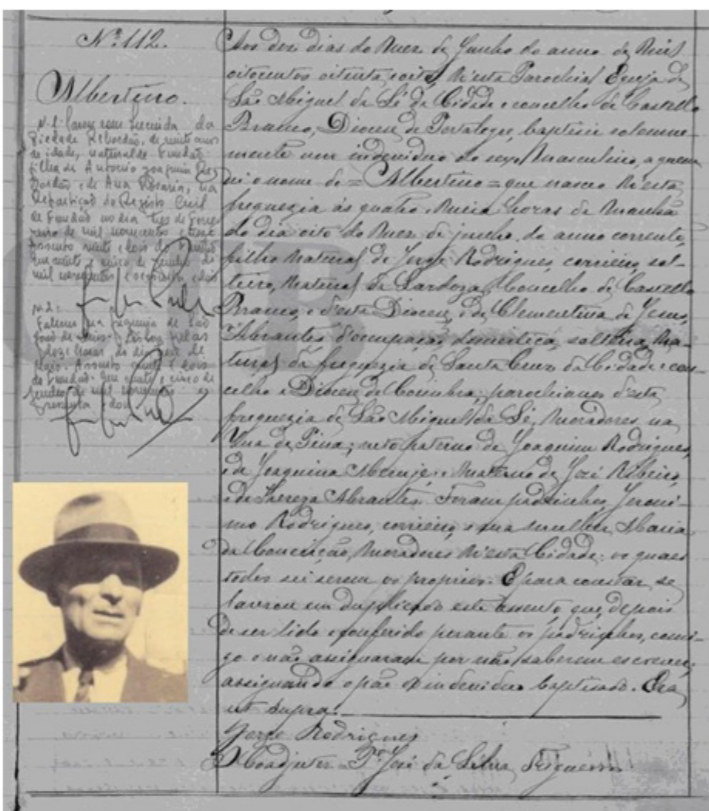 Nº 112.
Albertino.
N. 1. Casou com
Piedade Rebordão, de vinte anos
de idade, natural de Fundão
filha de Antonio Joaquim Re-
bordão e de Ana Rosaria, na
Repartição do Registo Civil
de Fundão no dia tres de Feve-
reiro de mil novecentos e treze
Assento vinte e dois do
Em vinte e cinco de Junho de
mil novecentos e sessenta e dois
N. 2.
Faleceu na freguesia de São
de Lisboa pelas
doze horas do dia sete de
Assento vinte e dois
de Fundão. Em vinte e cinco de
Junho de mil novecentos e
sessenta e dois
Aos dez dias do mez de Junho do anno de mil
oitocentos oitenta e oito, n'esta Parochial Egreja de
São Miguel da Sé da Cidade e concelho de Castello
Branco, Diocese de Portalegre, baptisei solemne-
mente um individuo do sexo masculino, a quem
dei o nome de = Albertino = que nasceu n'esta
freguezia ás quatro e meia horas da manhã
do dia oito do mez de junho do anno corrente,
filho natural de Jorge Rodrigues, corrieiro, sol-
teiro, natural de Sardoza, Concelho de Castello
Branco, e d'esta Diocese, e de Clementina de Jesus
Abrantes d'occupação domestica, solteira, na-
tural da freguezia de Santa Cruz da Cidade e con-
celho e Diocese de Coimbra, parochianos d'esta
freguezia de São Miguel da Sé, moradores na
Rua da Pina; neto paterno de Joaquim Rodrigues
e de Joaquina e materno de José Ribeiro
e de Thereza Abrantes. Foram padrinhos Jeroni-
mo Rodrigues, corrieiro e sua mulher Maria
da Conceição, moradores n'esta Cidade, os quaes
todos sei serem os proprios. E para constar se
lavrou em duplicado este assento, que depois
de ser lido e conferido perante os padrinhos, comi-
go o não assignaram por não saberem escrever,
assignando o pae do individuo baptisado. Era
ut supra.
Jorge Rodrigues
O Coadjutor Pe José da Silva